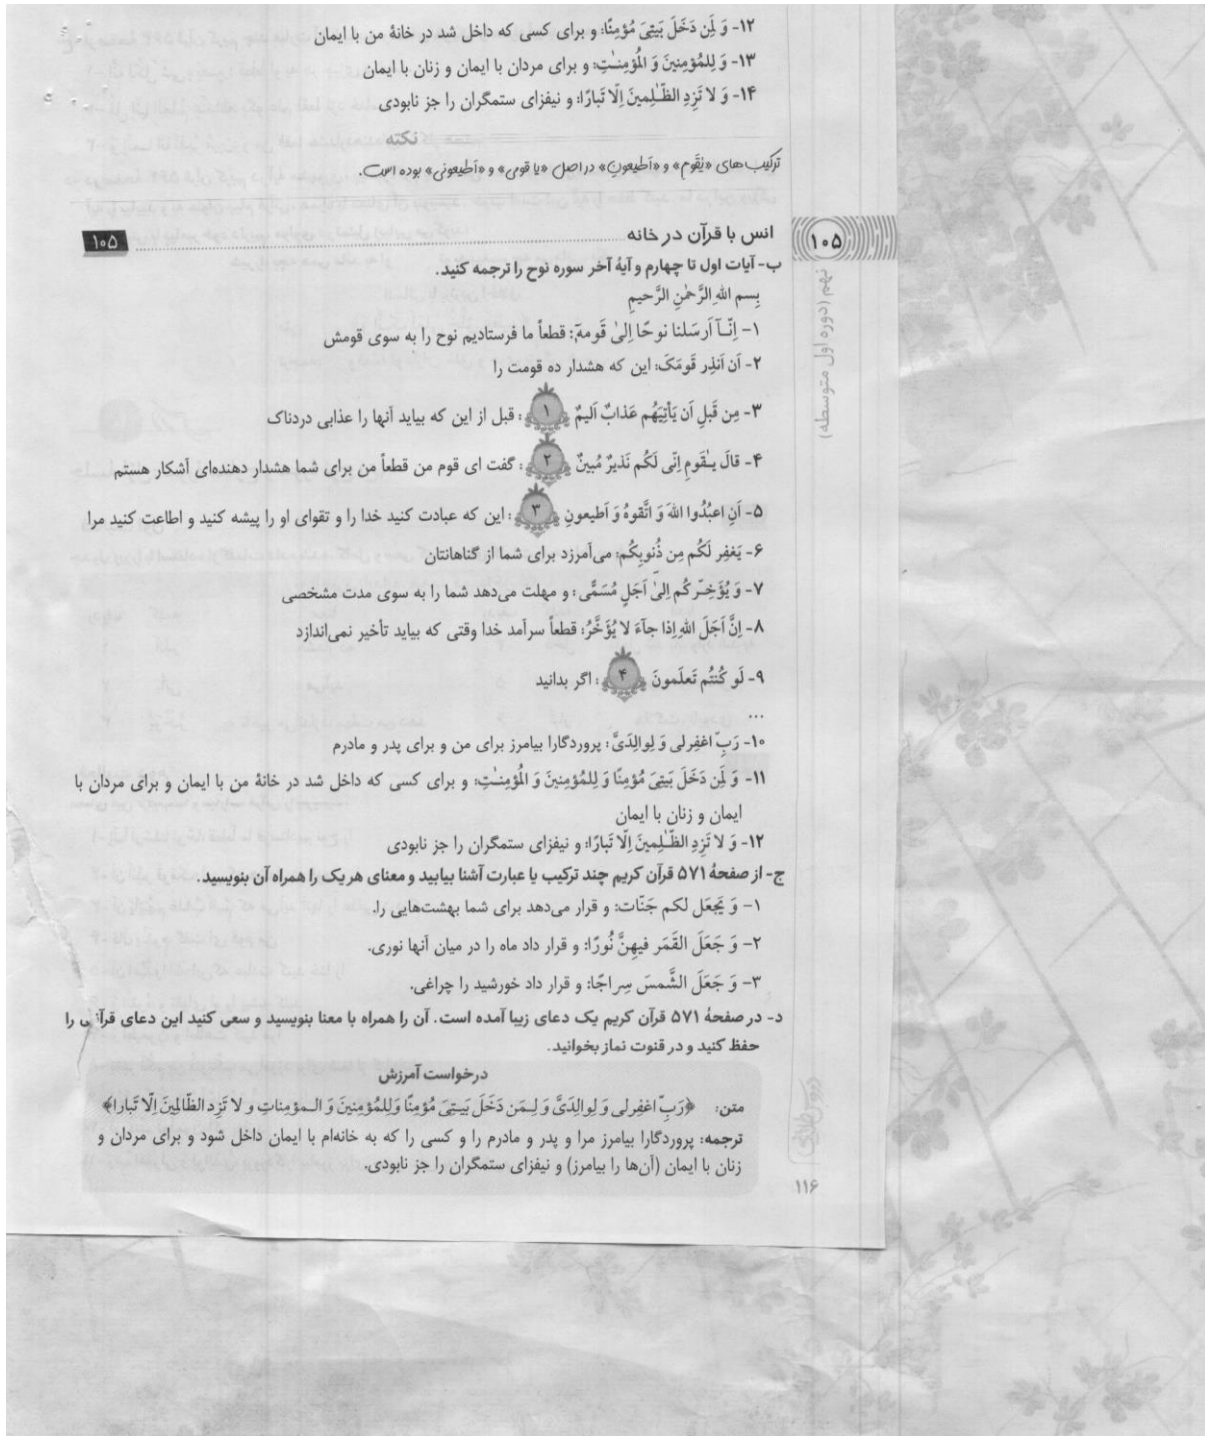 ۱۲- وَ لِمَن دَخَلَ بَیتِیَ مُؤمِنًا: و برای کسی که داخل شد در خانهٔ من با ایمان
۱۳- وَ لِلمُؤمِنینَ وَ المُؤمِنـٰتِ: و برای مردان با ایمان و زنان با ایمان
۱۴- وَ لا تَزِدِ الظّـٰلِمینَ اِلّا تَبارًا: و نیفزای ستمگران را جز نابودی
نکته
ترکیب‌های «یٰقَومِ» و «اَطیعونِ» در اصل «یا قومی» و «اَطیعونی» بوده است.
انس با قرآن در خانه ۱۰۵
۱۰۵
نهم (دوره اول متوسطه)
ب- آیات اول تا چهارم و آیهٔ آخر سوره نوح را ترجمه کنید.
بِسمِ اللهِ الرَّحمٰنِ الرَّحیمِ
۱- اِنّـآ اَرسَلنا نوحًا اِلیٰ قَومِهٓ: قطعاً ما فرستادیم نوح را به سوی قومش
۲- اَن اَنذِر قَومَکَ: این که هشدار ده قومت را
۳- مِن قَبلِ اَن یَأتِیَهُم عَذابٌ اَلیمٌ ۱ : قبل از این که بیاید آنها را عذابی دردناک
۴- قالَ یـٰقَومِ اِنّی لَکُم نَذیرٌ مُبینٌ ۲ : گفت ای قوم من قطعاً من برای شما هشدار دهنده‌ای آشکار هستم
۵- اَنِ اعبُدُوا اللهَ وَ اتَّقوهُ وَ اَطیعونِ ۳ : این که عبادت کنید خدا را و تقوای او را پیشه کنید و اطاعت کنید مرا
۶- یَغفِر لَکُم مِن ذُنوبِکُم: می‌آمرزد برای شما از گناهانتان
۷- وَ یُؤَخِّـرکُم اِلیٰٓ اَجَلٍ مُسَمًّی: و مهلت می‌دهد شما را به سوی مدت مشخصی
۸- اِنَّ اَجَلَ اللهِ اِذا جآءَ لا یُؤَخَّرُ: قطعاً سرآمد خدا وقتی که بیاید تأخیر نمی‌اندازد
۹- لَو کُنتُم تَعلَمونَ ۴ : اگر بدانید
...
۱۰- رَبِّ اغفِرلی وَ لِوالِدَیَّ: پروردگارا بیامرز برای من و برای پدر و مادرم
۱۱- وَ لِمَن دَخَلَ بَیتِیَ مُؤمِنًا وَ لِلمُؤمِنینَ وَ المُؤمِنـٰتِ: و برای کسی که داخل شد در خانهٔ من با ایمان و برای مردان با
ایمان و زنان با ایمان
۱۲- وَ لا تَزِدِ الظّـٰلِمینَ اِلّا تَبارًا: و نیفزای ستمگران را جز نابودی
ج- از صفحهٔ ۵۷۱ قرآن کریم چند ترکیب یا عبارت آشنا بیابید و معنای هر یک را همراه آن بنویسید.
۱- وَ یَجعَل لکم جَنّات: و قرار می‌دهد برای شما بهشت‌هایی را.
۲- وَ جَعَلَ القَمَر فیهِنَّ نُورًا: و قرار داد ماه را در میان آنها نوری.
۳- وَ جَعَلَ الشَّمسَ سِراجًا: و قرار داد خورشید را چراغی.
د- در صفحهٔ ۵۷۱ قرآن کریم یک دعای زیبا آمده است. آن را همراه با معنا بنویسید و سعی کنید این دعای قرآنی را
حفظ کنید و در قنوت نماز بخوانید.
درخواست آمرزش
متن: ﴿رَبِّ اغفِرلی وَ لِوالِدَیَّ وَ لِـمَن دَخَلَ بَیـتِیَ مُؤمِنًا وَلِلمُؤمِنینَ وَ الـمؤمِناتِ و لا تَزِد الظّالِمینَ اِلّا تَبارا﴾
ترجمه: پروردگارا بیامرز مرا و پدر و مادرم را و کسی را که به خانه‌ام با ایمان داخل شود و برای مردان و
زنان با ایمان (آن‌ها را بیامرز) و نیفزای ستمگران را جز نابودی.
۱۱۶